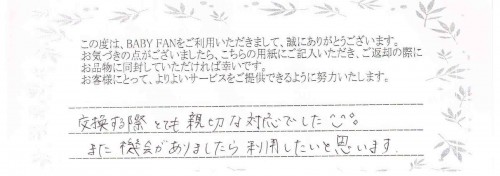 この度は、BABY FANをご利用いただきまして、誠にありがとうございます。
お気づきの点がございましたら、こちらの用紙にご記入いただき、ご返却の際に
お品物に同封していただければ幸いです。
お客様にとって、よりよいサービスをご提供できるように努力いたします。
交換する際とても親切な対応でした。
また機会がありましたら利用したいと思います。